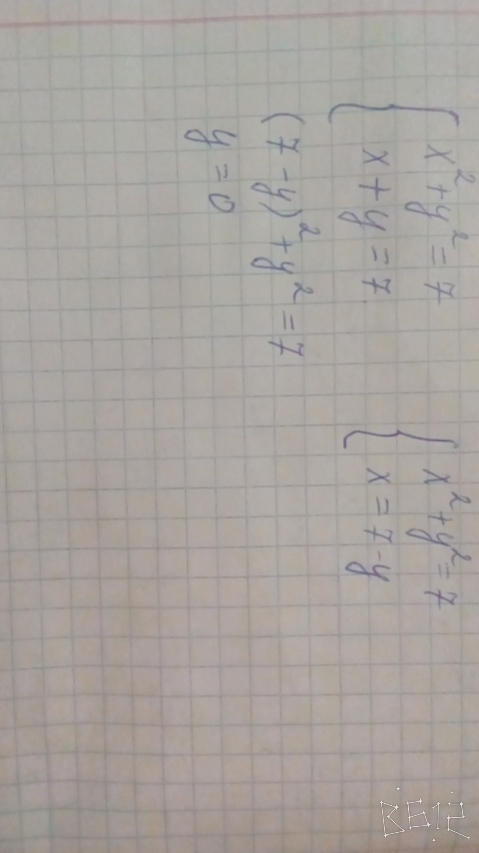 { x² + y² = 7
{ x + y = 7
{ x² + y² = 7
{ x = 7 - y
(7 - y)² + y² = 7
y = 0
B612